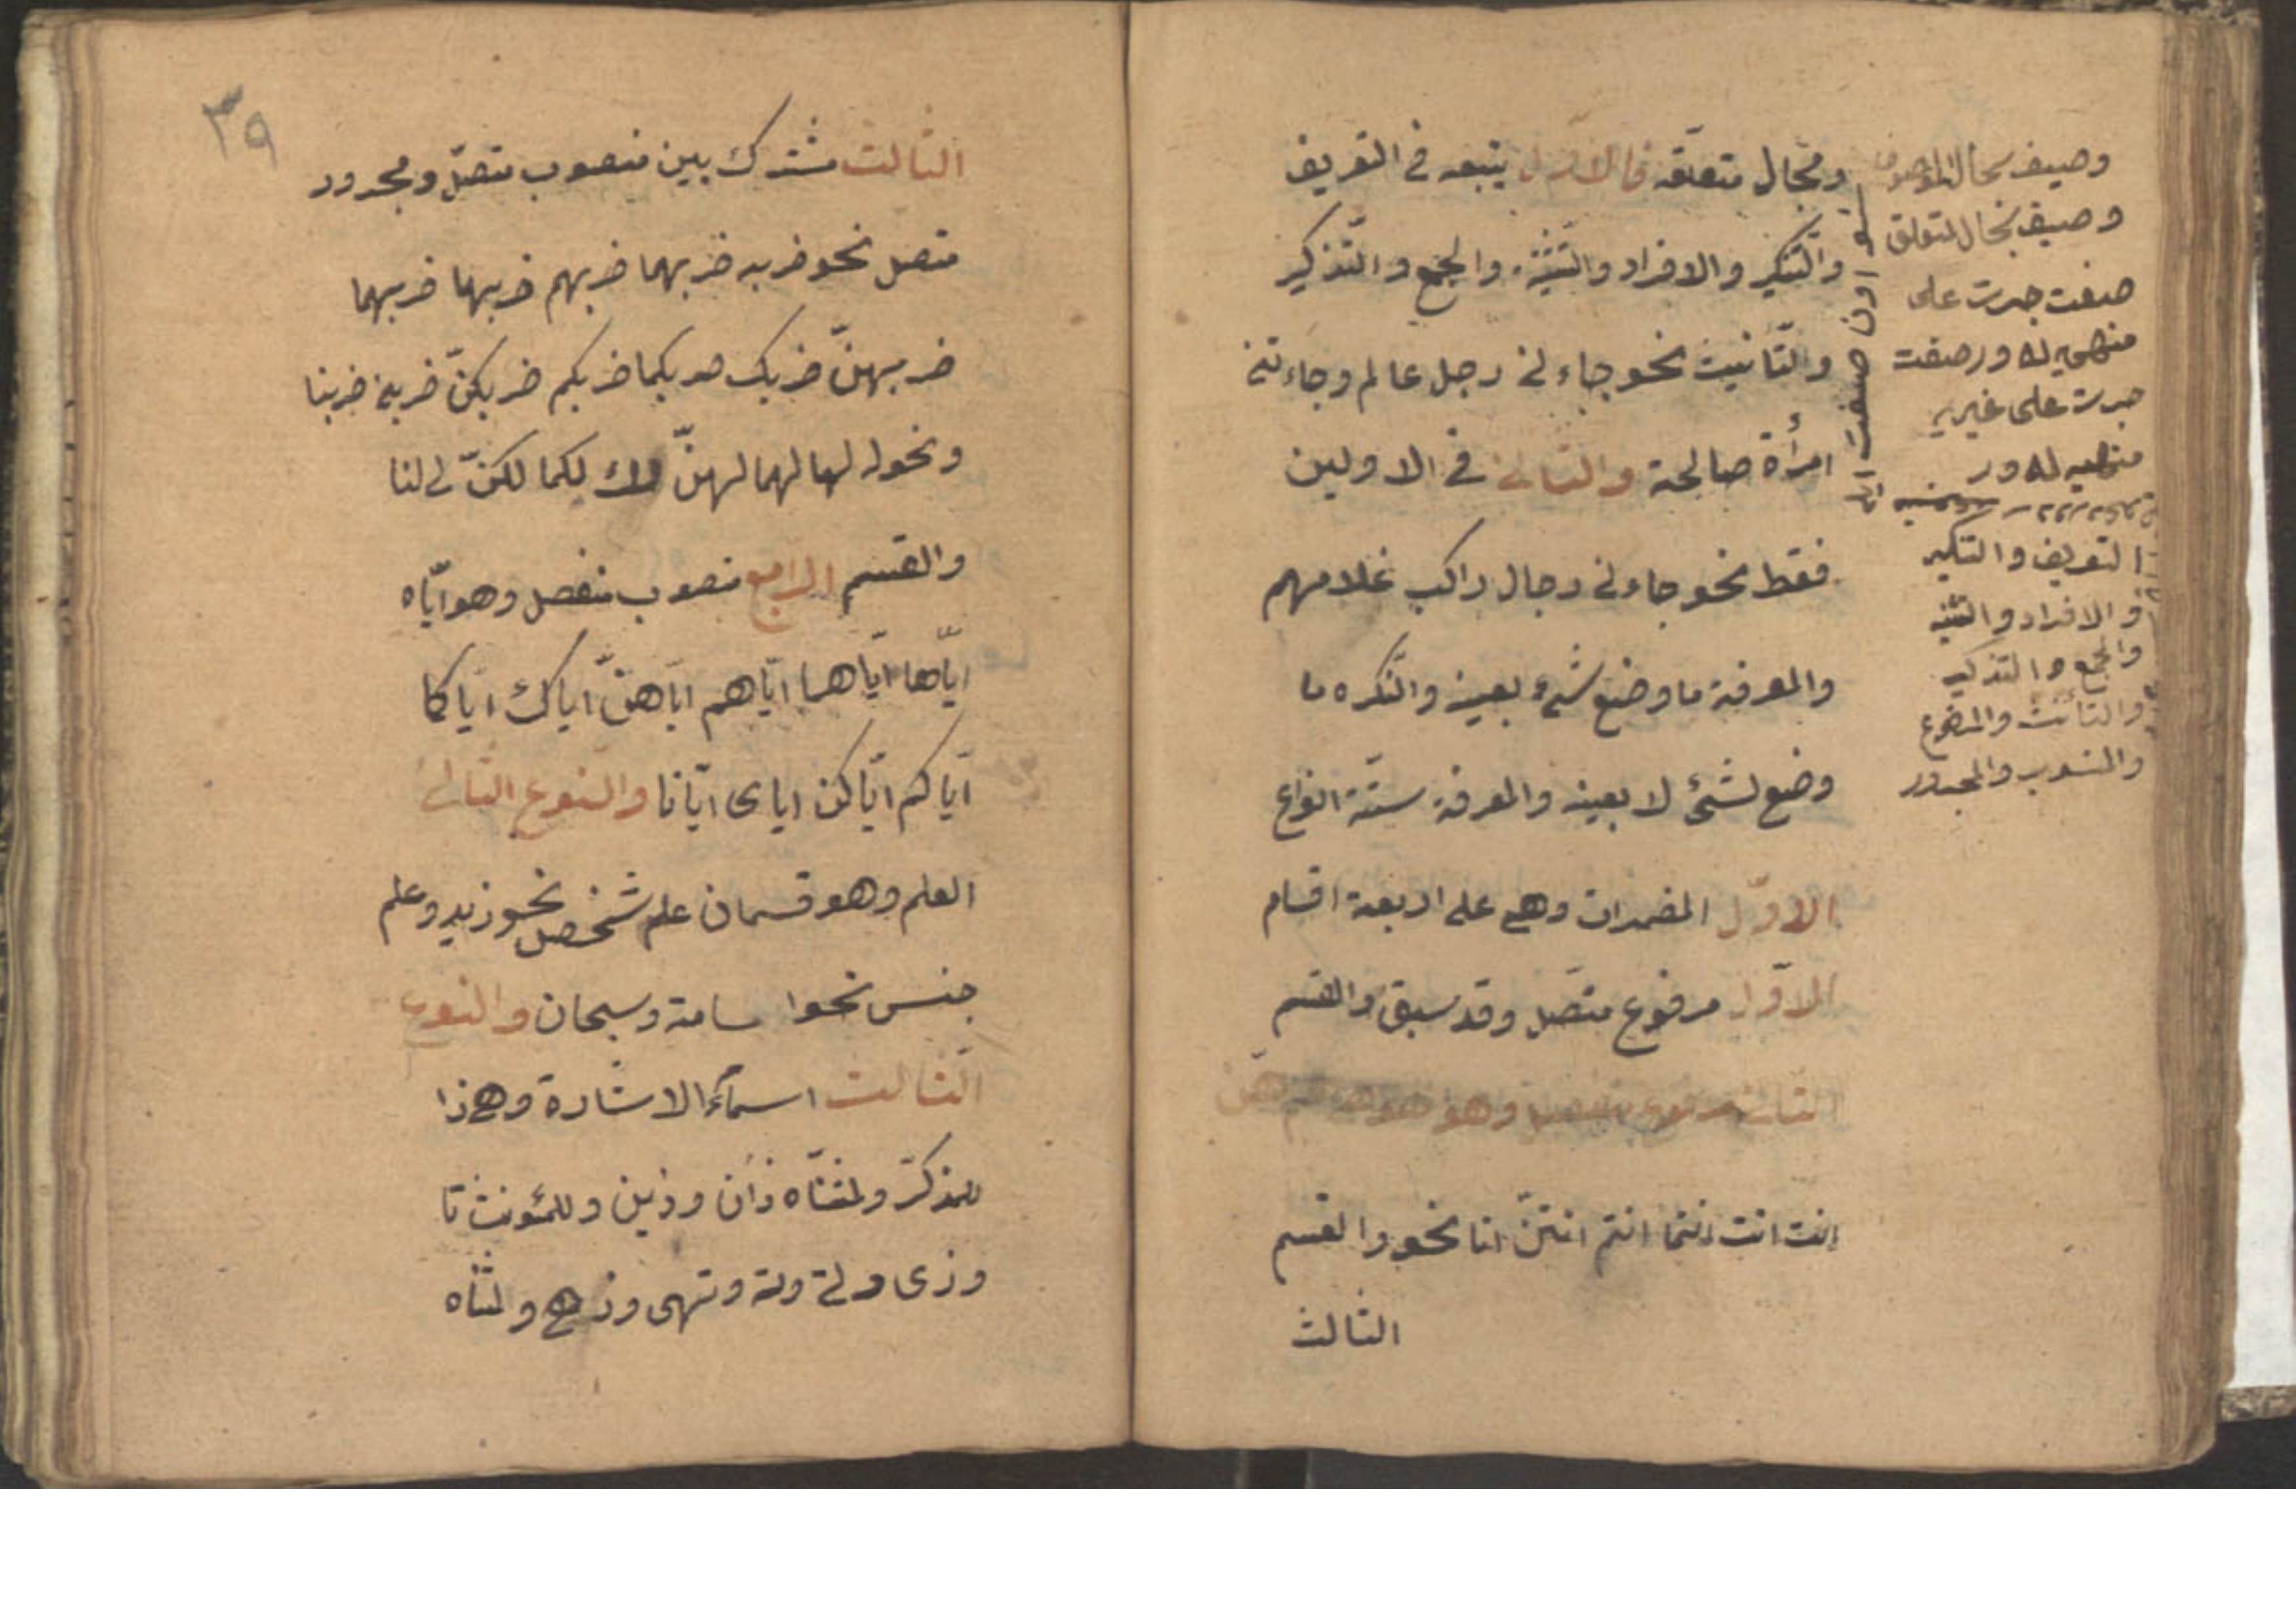 وبحال متعلقه فالاول يتبعه في التعريف
والتنكير والافراد والتثنيه والجمع والتذكير
والتانيث نحو جاءنى رجل عالم وجاءتنى
امرأة صالحة والثانى فى الاولين
فقط نحو جاءنى رجال راكب غلامهم
والمعرفة ما وضع لشئ بعينه والنكره ما
وضع لشئ لا بعينه والمعرفة ستة انواع
الاول المضمرات وهى على اربعة اقسام
الاول مرفوع متصل وقد سبق والقسم
الثانى مرفوع منفصل وهو هو هما هم هن
انت انت انتما انتم انتن انا نحن والقسم
الثالث
وصيف بحال الموصوف
وصيف بحال المتعلق
صفت جرت على
منهى له در صفت
جرت على غير
منهيه له در
التعريف والتنكير
والافراد والتثنيه
والجمع والتذكير
والتأنث والمرفوع
والمنسوب والمجرور
٣٩
الثالث مشترك بين منصوب متصل ومجرور
متصل نحو ضربه ضربهما ضربهم ضربها ضربهما
ضربهن ضربك ضربكما ضربكم ضربكن ضربنى ضربنا
ونحو له لها لهما لهن لك لكما لكن لى لنا
والقسم الرابع منصوب منفصل وهو اياه
اياها اياهما اياهم اياهن اياك اياكما
اياكم اياكن اياى ايانا والنوع الثانى
العلم وهو قسمان علم شخص نحو زيد وعلم
جنس نحو اسامة وسبحان والنوع
الثالث اسمآء الاشارة وهى ذا
للمذكر ولمثناه ذان وذين وللمؤنث تا
وذى وتى وته وتهى وذهى ولمثناه